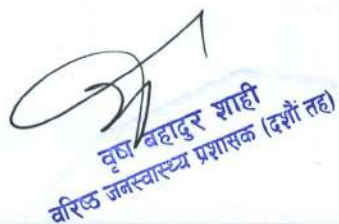 वृष बहादुर शाही
वरिष्ठ जनस्वास्थ्य प्रशासक (दशौं तह)